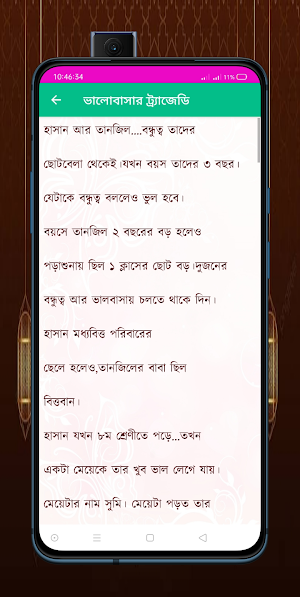 10:46:34
11%
ভালোবাসার ট্র্যাজেডি
হাসান আর তানজিল....বন্ধুত্ব তাদের
ছোটবেলা থেকেই।যখন বয়স তাদের ৩ বছর।
যেটাকে বন্ধুত্ব বললেও ভুল হবে।
বয়সে তানজিল ২ বছরের বড় হলেও
পড়াশুনায় ছিল ১ ক্লাসের ছোট বড়।দুজনের
বন্ধুত্ব আর ভালবাসায় চলতে থাকে দিন।
হাসান মধ্যবিত্ত পরিবারের
ছেলে হলেও,তানজিলের বাবা ছিল
বিত্তবান।
হাসান যখন ৮ম শ্রেণীতে পড়ে...তখন
একটা মেয়েকে তার খুব ভাল লেগে যায়।
মেয়েটার নাম সুমি। মেয়েটা পড়ত তার